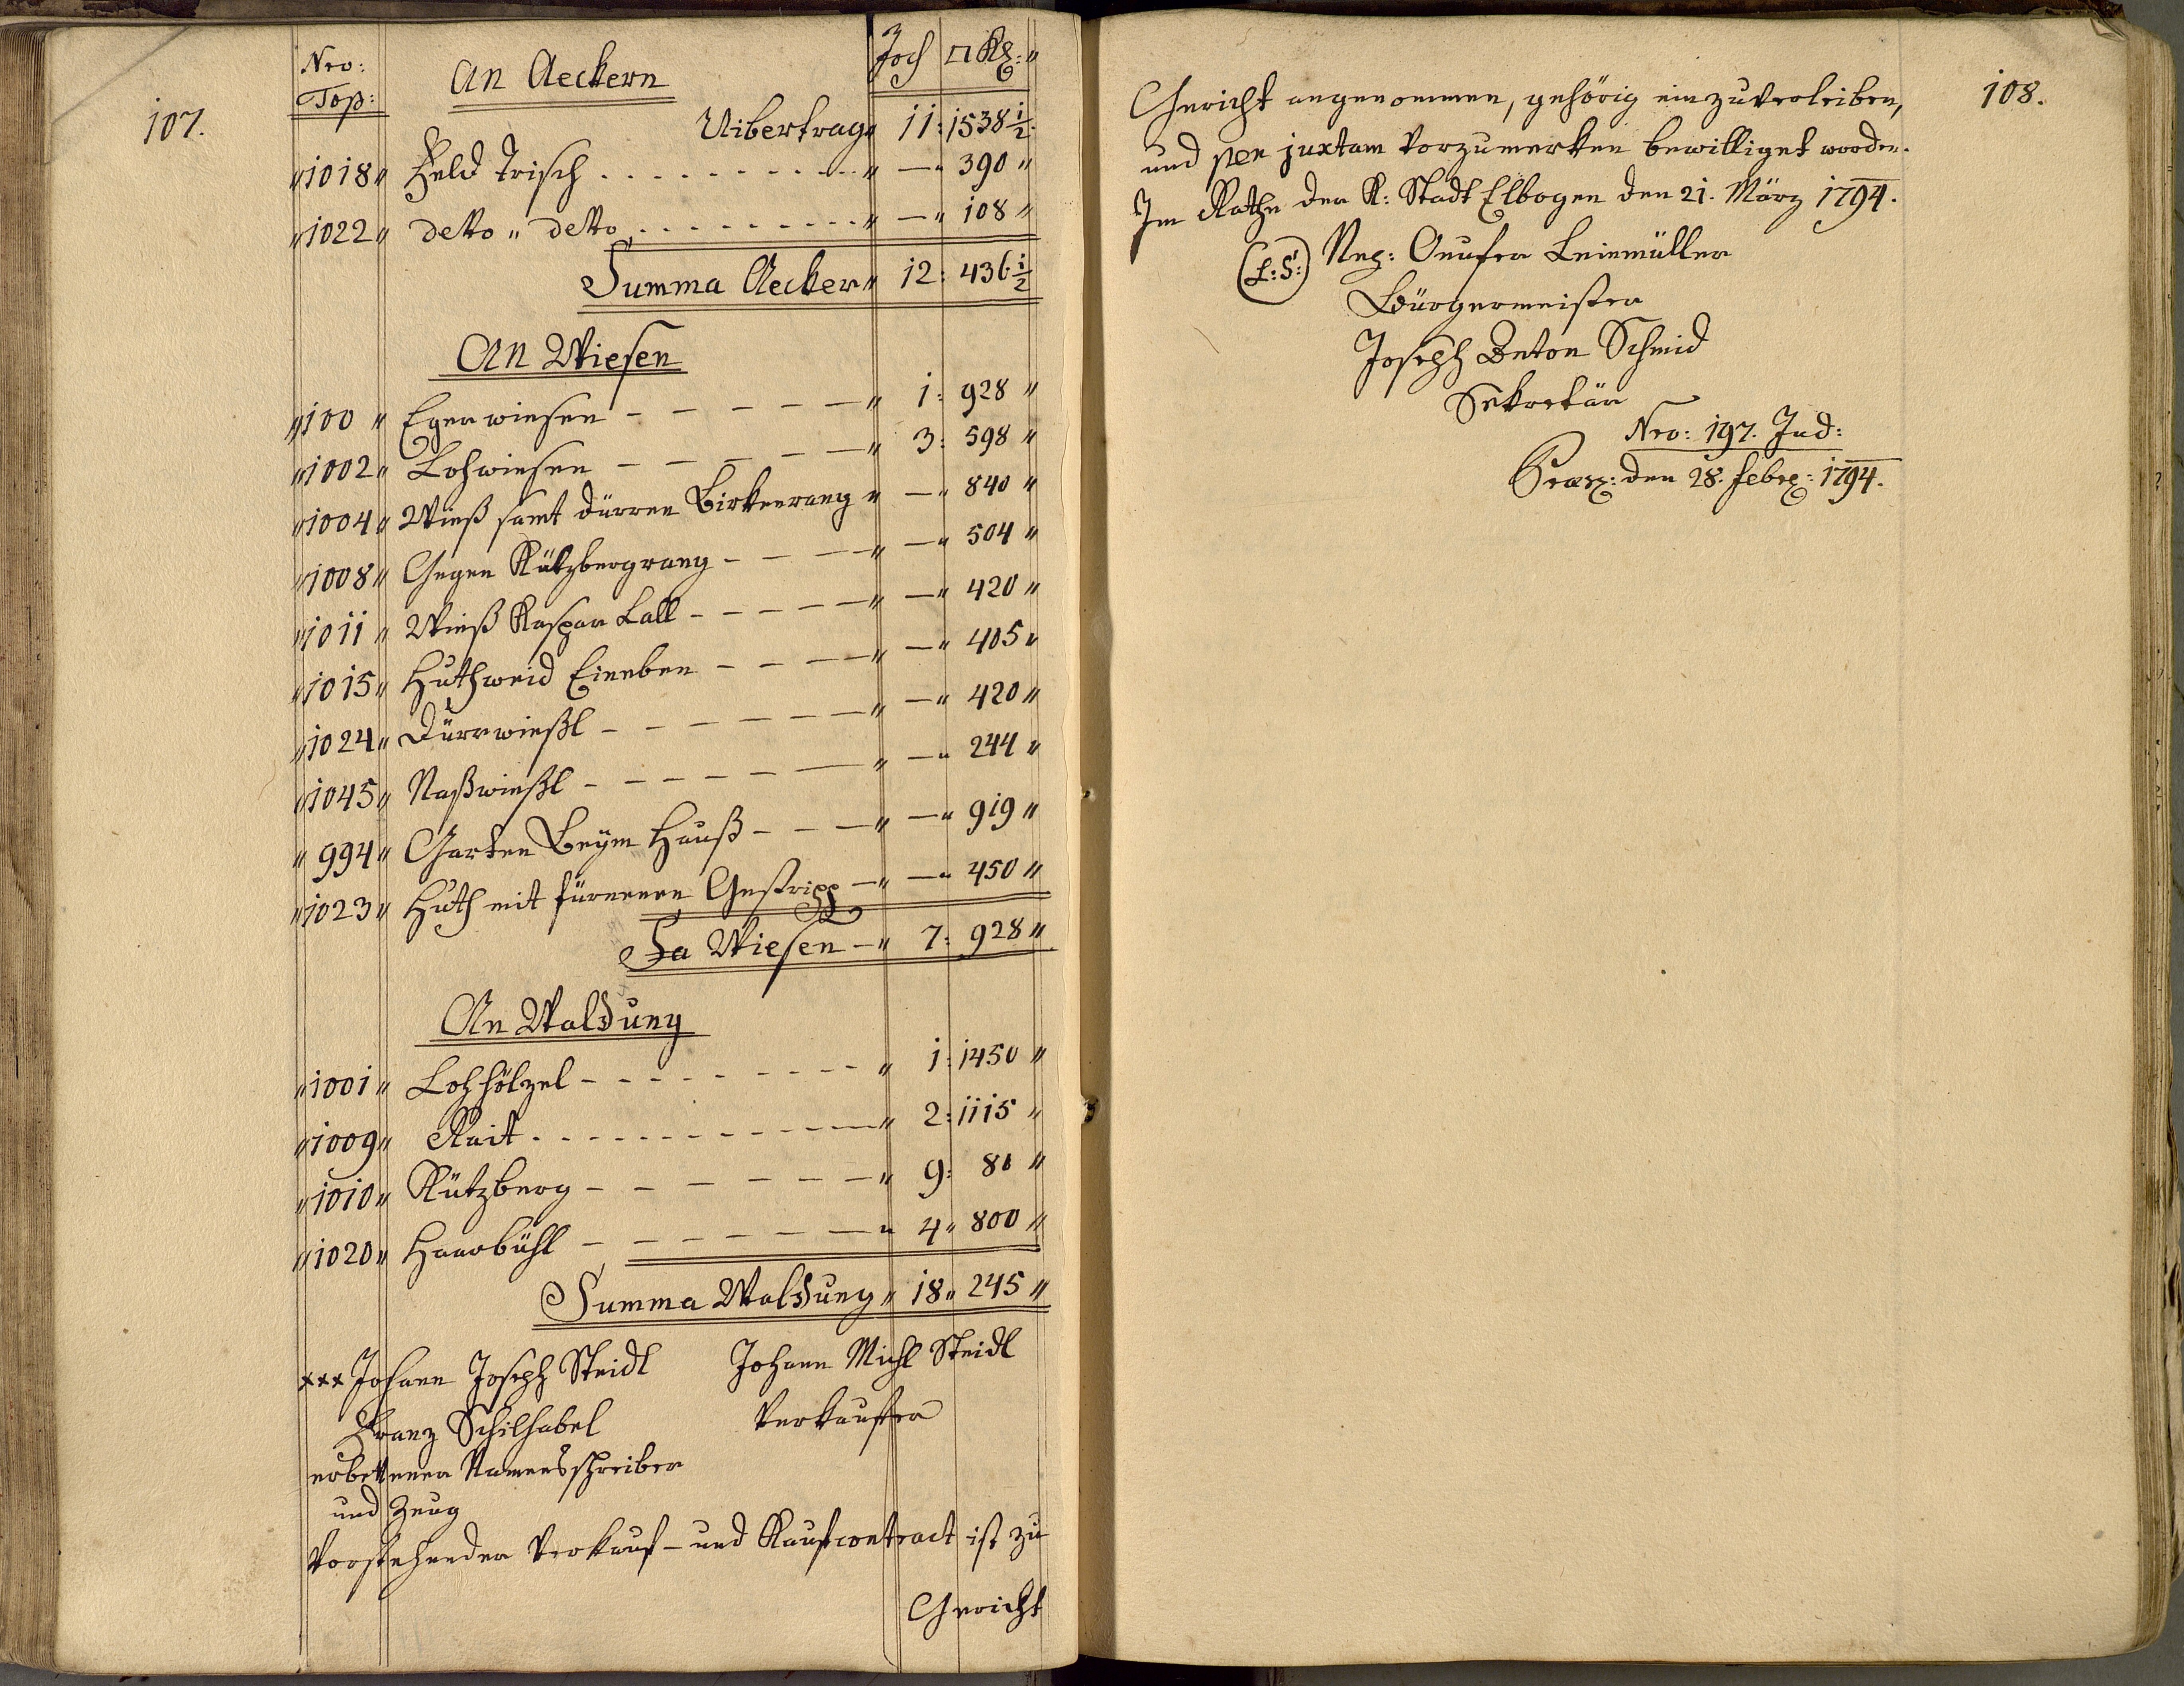 107.
Nro: Top: An Aeckern Joch □ Kl: "
Uibertrag " 11: 1538 1/2
" 1018 " Feld Trisch . . . . . . . . . . " — " 390 "
" 1022 " detto " detto . . . . . . . . . " — " 108 "
Summa Aecker " 12: 436 1/2
An Wiesen
" 100 " Egerwiesen - - - - - " 1: 928 "
" 1002 " Lohwiesen - - - - - " 3: 598 "
" 1004 " Wieß samt dürren Birkenrang " — " 840 "
" 1008 " Gegen Kützbergrang - - - " — " 504 "
" 1011 " Wieß Kaspar Lall - - - - - " — " 420 "
" 1015 " Huthweid Eineben - - - - " — " 405 "
" 1024 " Dürrwießl - - - - - - " — " 420 "
" 1045 " Naßwießl - - - - - - " — " 244 "
" 994 " Garten Beym Hauß - - - " — " 919 "
" 1023 " Huth mit Gestripp — " — " 450 "
Sa Wiesen — " 7: 928 "
An Waldung
" 1001 " Lohhölzel - - - - - - - - - " 1: 1450 "
" 1009 " Rait . . . . . . . . . . . . " 2: 1115 "
" 1010 " Kützberg - - - - - - " 9: 80 "
" 1020 " Haarbühl - - - - - - " 4 " 800 "
Summa Waldung " 18 " 245 "
xxx Johann Joseph Steidl Johann Michl Steidl
Franz Schilhabel Verkauffer
erbettener Namensschreiber
und Zeug
Vorstehender Verkauf- und Kaufcontract ist zu
Gericht
108.
Gericht angenommen, gehörig einzuverleiben,
und per juxtam vorzumerken bewilliget worden.
Im Rathe der K: Stadt Elbogen den 21. März 1794.
(L: S:) Neg: Leinmüller
Bürgermeister
Joseph Anton Schmid
Sekretär
Nro: 197. Jud:
Præs: den 28. Febr: 1794.